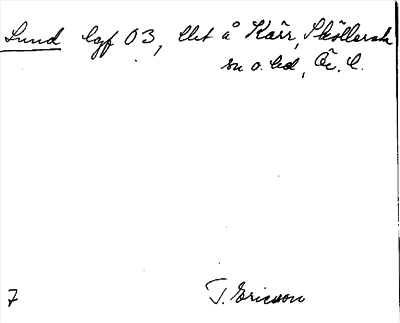 Lund lgf 03, Elet å Kärr, Sköllersta
sn o. hd, Ör. l.
7 T. Ericsson